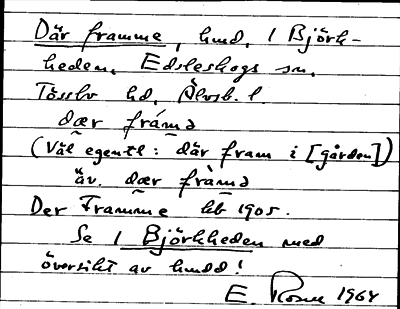 Där framme, hmd, 1 Björk-
heden, Edsleskogs sn,
Tössbo hd, Älvsb. l.
dær frámə
(Väl egentl: där fram i [gården])
äv. dær fràmə
Der Framme hb 1905.
Se 1 Björkheden med
översikt av hmdd!
E. 1964